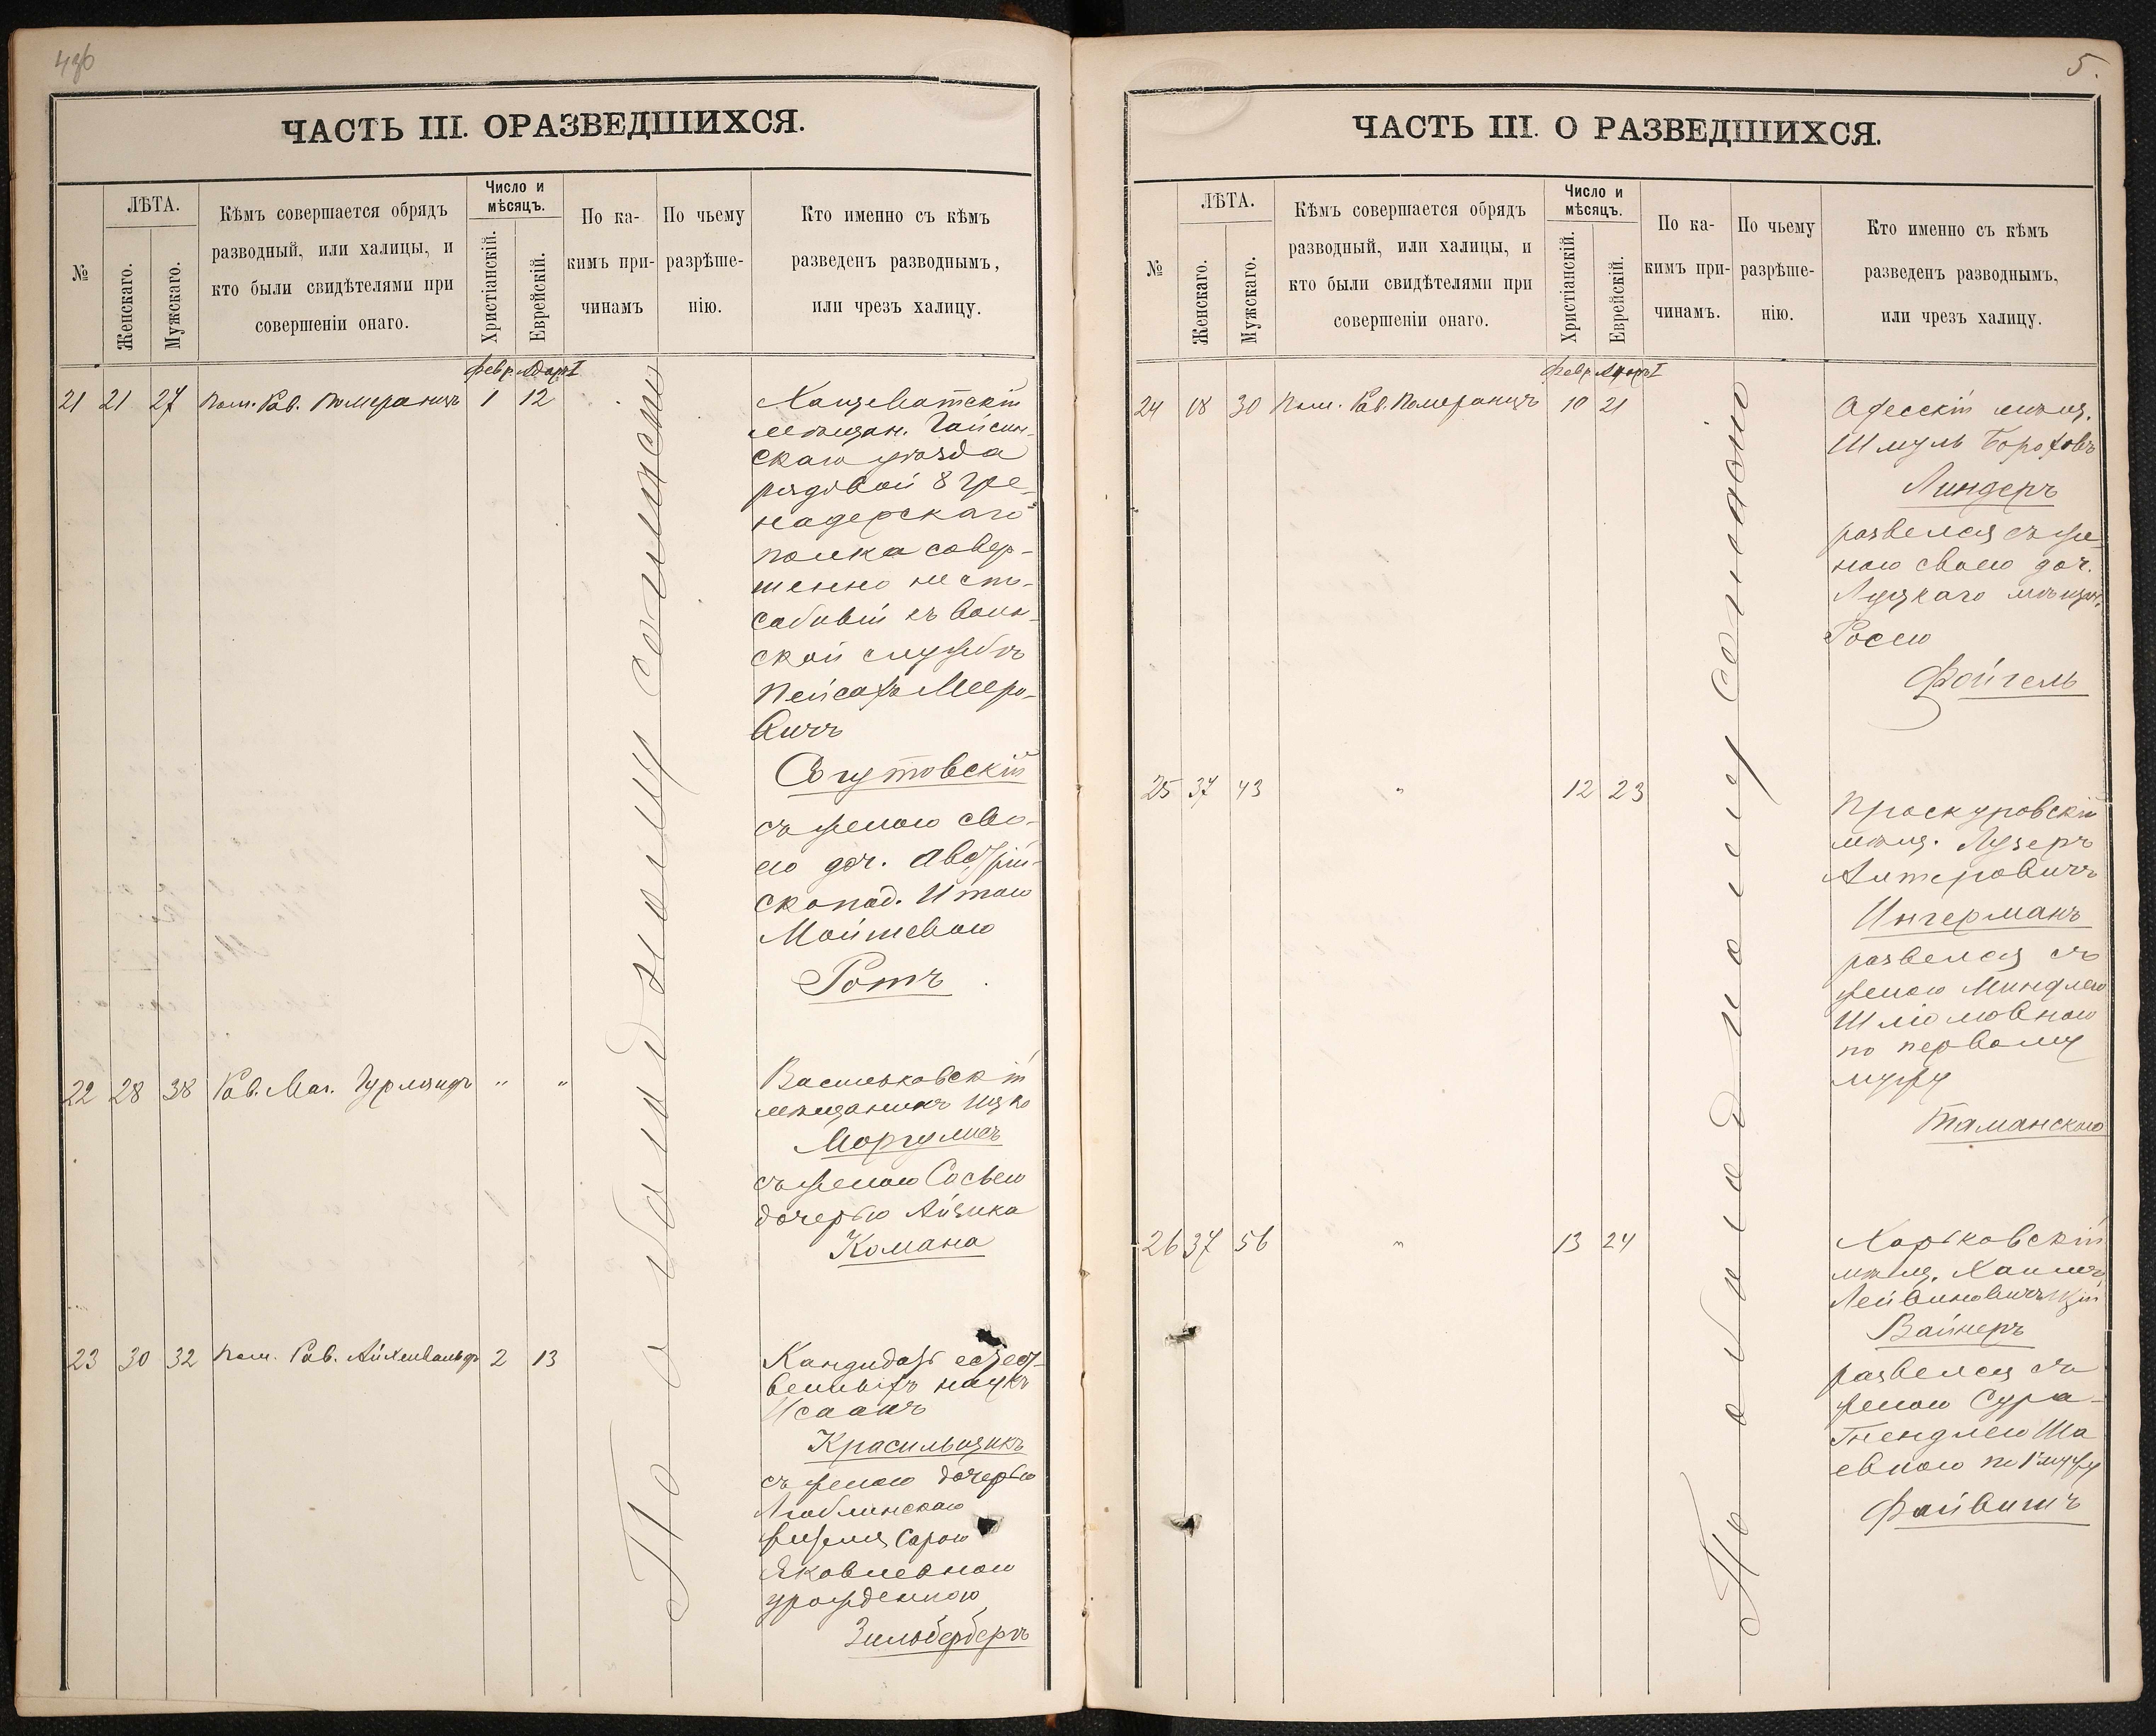 436
ЧАСТЬ III. О РАЗВЕДШИХСЯ.
№
ЛѢТА.
Женскаго.
Мужскаго.
Кѣмъ совершается обрядъ
разводный, или халицы, и
кто были свидѣтелями при
совершеніи онаго.
Число и
мѣсяцъ.
Христіанскій.
Еврейскій.
По ка-
кимъ при-
чинамъ
По чьему
разрѣше-
нію.
Кто именно съ кѣмъ
разведенъ разводнымъ,
или чрезъ халицу.
Февр. Адаръ I
21 21 27 Пом. Рав. Померанцъ 1 12
Хащеватскій
мѣщан. Гайсин-
скаго уѣзда
рядовой 8 гре-
надерскаго
полка совер-
шенно неспо-
собный къ воин-
ской службѣ
Пейсахъ Мееро-
вичъ
Согутовскій
съ женою сво-
ею доч. Австрій-
скопод. Итою
Мойшевою
Ротъ
22 28 38 Рав. Маг. Гурляндъ " "
Васильковскій
мѣщанинъ Ицко
Моргулисъ
съ женою Сосьею
дочерью Айзика
Комана
23 30 32 Пом. Рав. Айхенвальдъ 2 13
Кандидатъ естест-
венныхъ наукъ
Исаакъ
Красильщикъ
съ женою дочерью
Люблинскаго
жителя Сарою
Яковлевною
урожденною
Зильбербергъ
По обоюдному согласію
5.
ЧАСТЬ III. О РАЗВЕДШИХСЯ.
№
ЛѢТА.
Женскаго.
Мужскаго.
Кѣмъ совершается обрядъ
разводный, или халицы, и
кто были свидѣтелями при
совершеніи онаго.
Число и
мѣсяцъ.
Христіанскій.
Еврейскій.
По ка-
кимъ при-
чинамъ.
По чьему
разрѣше-
нію.
Кто именно съ кѣмъ
разведенъ разводнымъ,
или чрезъ халицу.
Февр. Адаръ I
24 18 30 Пом. Рав. Померанцъ 10 21
Одесскій мѣщ.
Шмуль Бороховъ
Линдеръ
развелся съ же-
ною своею доч.
Луцкаго мѣщан.
Росею
Фойгель
25 37 43 " 12 23
Проскуровскій
мѣщ. Лузеръ
Алтеровичъ
Ингерманъ
развелся съ
женою Миндлею
Шлiомовною
по первому
мужу
Таманскою
26 37 56 " 13 24
Харьковскій
мѣщ. Хаимъ
Вайнеръ
развелся съ
женою Сура-
Гнендлею Ша
евною по 1 мужу
Файвишъ
По обоюдному согласію